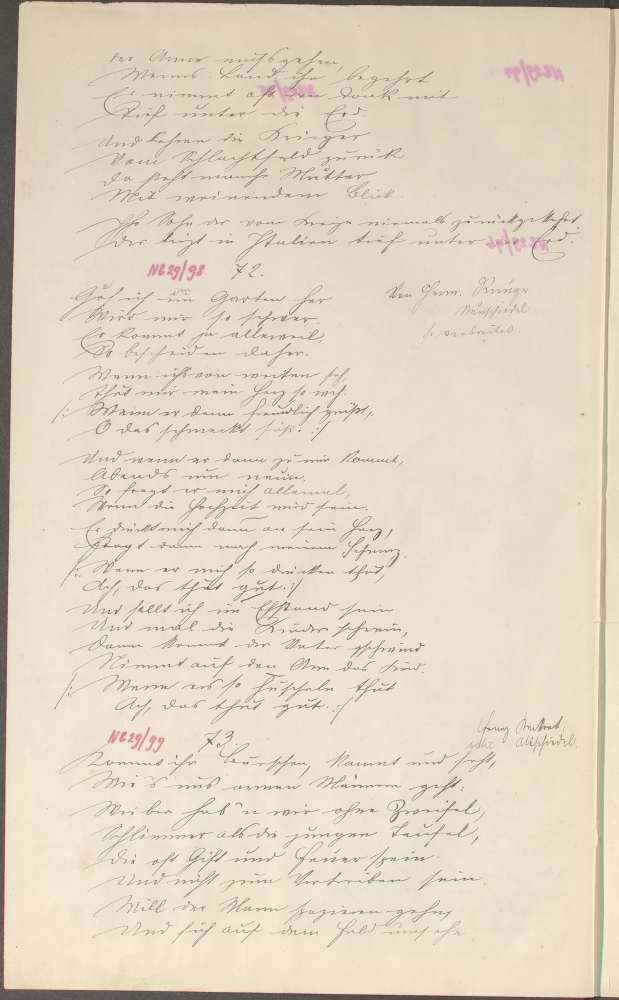 der Arme muß gehen,
Wenns Land ihn begehrt
Er nimmt oft den Dank mit
Tief unter die Erd.
Und kehren die Krieger
Vom Schlachtfeld zurük
Da steht manche Mutter
Mit weinendem Blick.
Ihr Sohn der vom Kriege niemals zurückgekehrt
Der liegt in Italien tief unter der Erd.
NE29/98 72.
Geh ich im Garten her
Wird mir so schwer,
Er kommt ja allerweil,
So bescheiden daher.
Wenn ichs von weiten seh,
Thut mir mein Herz so weh.
/: Wenn er dann freundlich grüßt,
O das schmeckt süß. :/
Und wenn er dann zu mir kommt,
Abends um neun,
So fragt er mich allemal,
Wenn die Hochzeit wird sein.
Er drückt mich dann an sein Herz,
Fragt dann nach meinem Schmerz.
/: Wenn er mich so drücken thut,
Ach, das thut gut. :/
Und sollt ich im Ehstand sein
Und mal die Kinder schrein,
Dann kommt der Vater gschwind
Nimmt auf den Arm das Kind.
/: Wenn er's so huscheln thut
Ach, das thut gut. :/
NE29/99 73.
Kommt ihr Burschen, kommt und seht,
Wie's uns armen Männern geht.
Weiber hab'n wir ohne Zweifel,
Schlimmer als die jungen Teufel,
Die oft Gift und Feuer spein.
Und nicht zum Vertreiben sein.
Will der Mann spazieren gehn,
Und sich auf dem Feld umsehn